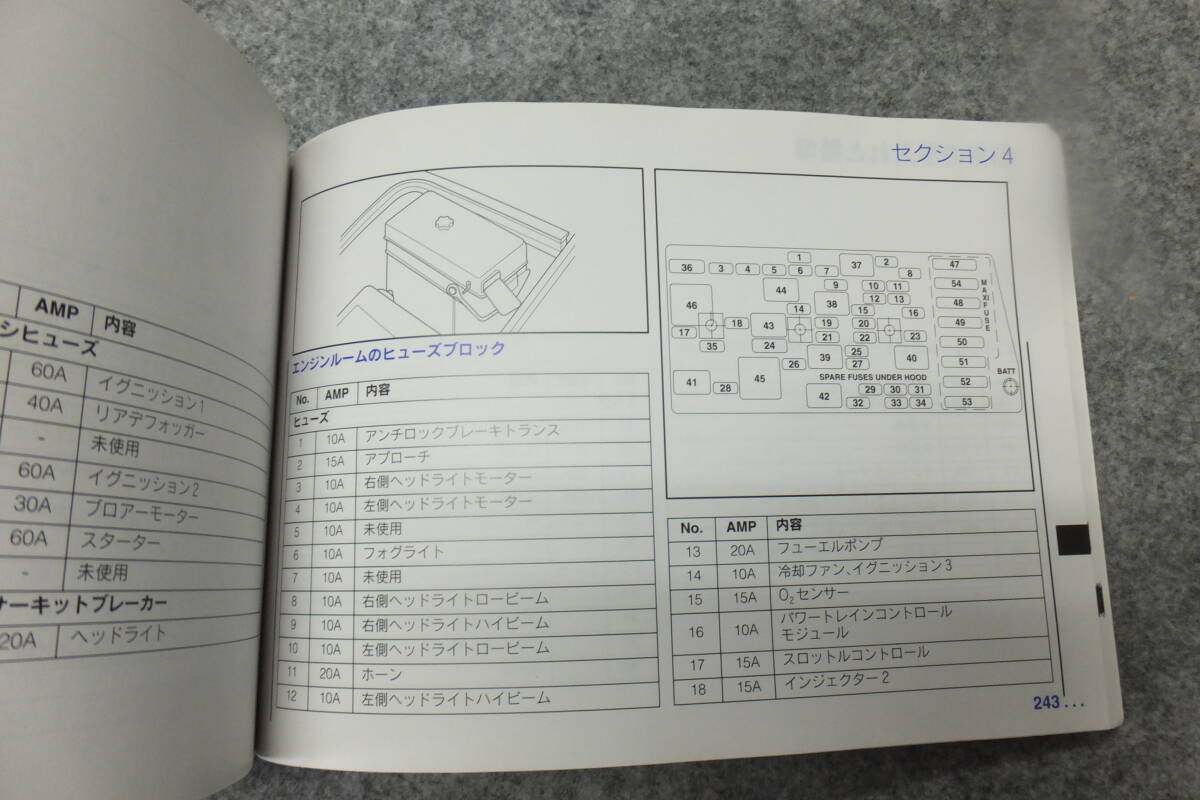 AMP 内容
シヒューズ
60A イグニッション1
40A リアデフォッガー
- 未使用
60A イグニッション2
30A ブロアーモーター
60A スターター
- 未使用
サーキットブレーカー
20A ヘッドライト
セクション 4
エンジンルームのヒューズブロック
No. AMP 内容
ヒューズ
1 10A アンチロックブレーキトランス
2 15A アプローチ
3 10A 右側ヘッドライトモーター
4 10A 左側ヘッドライトモーター
5 10A 未使用
6 10A フォグライト
7 10A 未使用
8 10A 右側ヘッドライトロービーム
9 10A 右側ヘッドライトハイビーム
10 10A 左側ヘッドライトロービーム
11 20A ホーン
12 10A 左側ヘッドライトハイビーム
1 37 2 47
36 3 4 5 6 7 8
44 9 10 11 54
46 38 12 13 48
14 15 16
17 18 43 19 20 49
35 24 21 22 23 50
26 39 25 27 40 51
41 28 45 52
SPARE FUSES UNDER HOOD
42 29 30 31
32 33 34 53
MAXI FUSE
BATT
No. AMP 内容
13 20A フューエルポンプ
14 10A 冷却ファン、イグニッション 3
15 15A O2 センサー
16 10A パワートレインコントロール
モジュール
17 15A スロットルコントロール
18 15A インジェクター 2
243 . . .